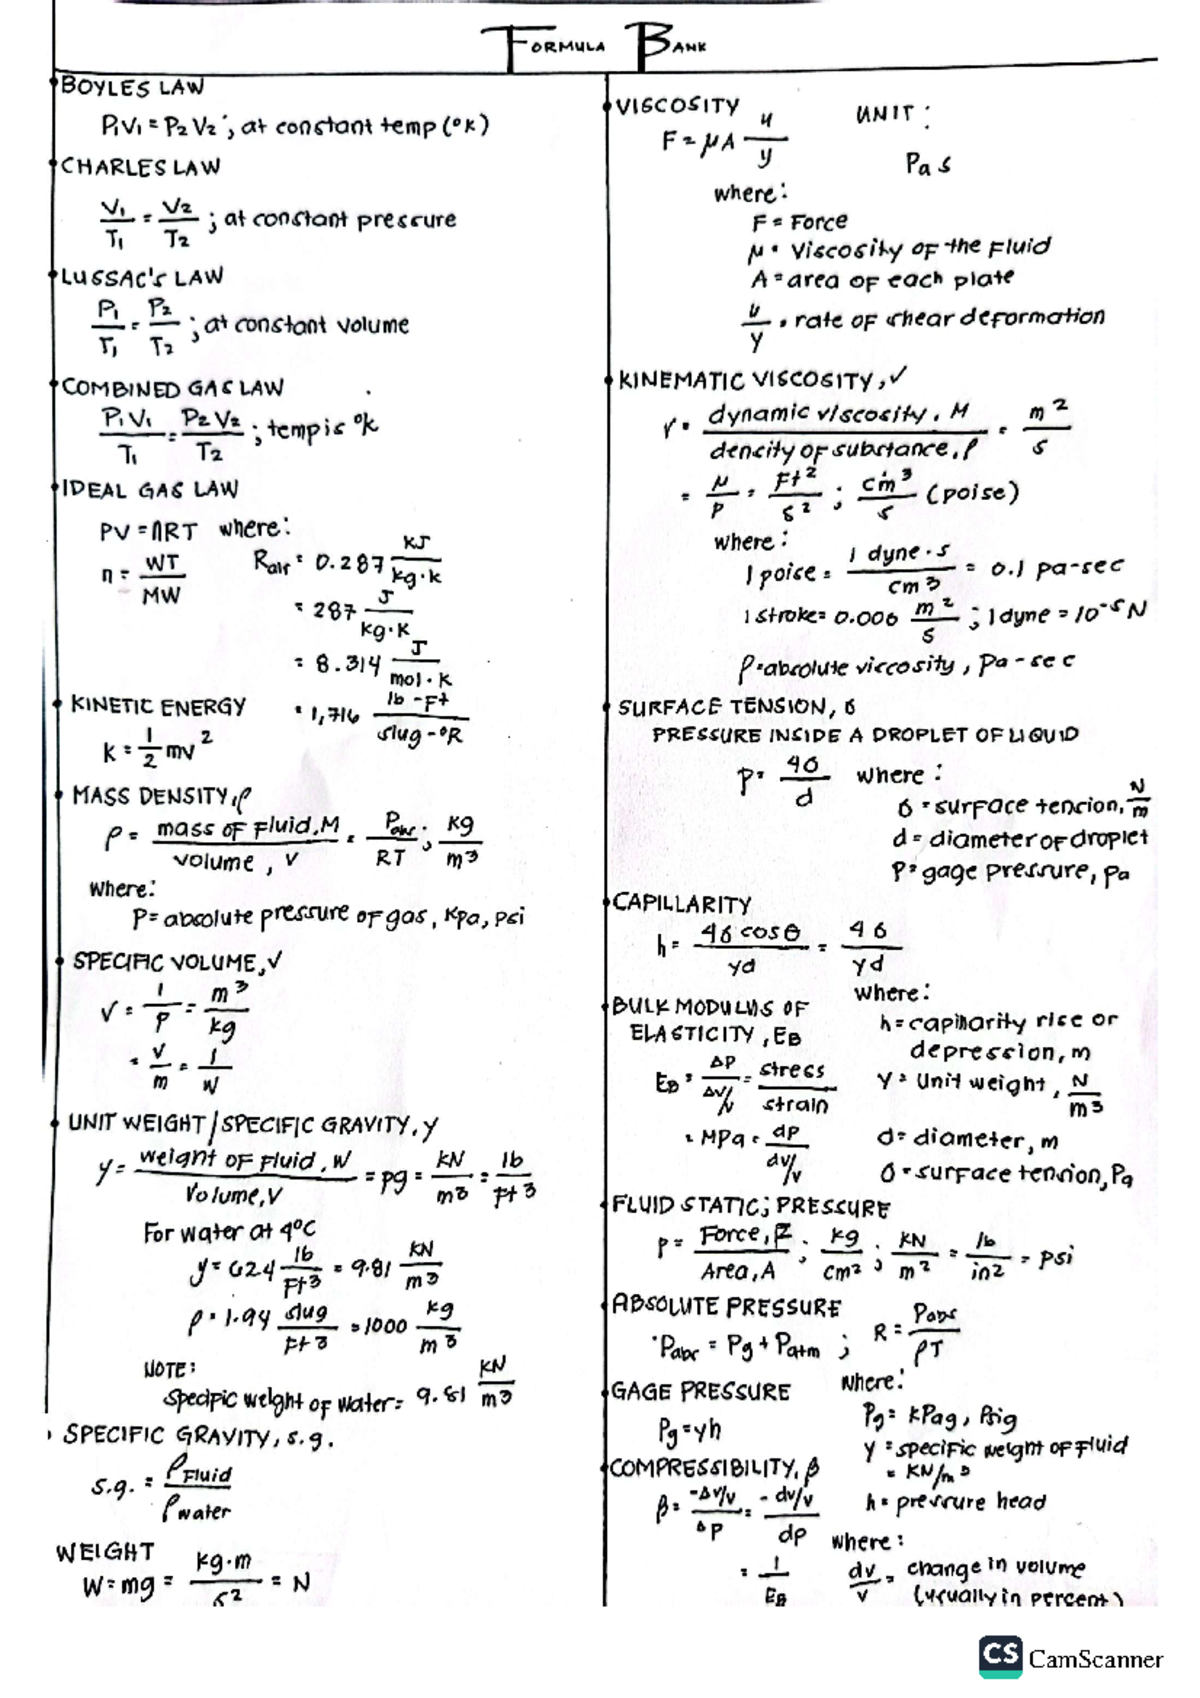 FORMULA BANK
• BOYLES LAW
P₁V₁ = P₂V₂ ; at constant temp (°K)
• CHARLES LAW
V₁/T₁ = V₂/T₂ ; at constant pressure
• LUSSAC'S LAW
P₁/T₁ = P₂/T₂ ; at constant volume
• COMBINED GAS LAW
P₁V₁/T₁ = P₂V₂/T₂ ; temp is °k
• IDEAL GAS LAW
PV = nRT where:
n = WT/MW
Rair = 0.287 KJ/kg·k
= 287 J/kg·K
= 8.314 J/mol·K
= 1,716 lb-Ft/slug-°R
• KINETIC ENERGY
K = 1/2 mv²
• MASS DENSITY, ρ
ρ = mass of Fluid, M/volume, V = Pabs/RT ; kg/m³
where:
P = absolute pressure of gas, Kpa, psi
• SPECIFIC VOLUME, √
√ = 1/ρ = m³/kg
= V/m = 1/W
• UNIT WEIGHT/SPECIFIC GRAVITY, y
y = weight of Fluid, W/Volume, V = pg = kN/m³ = lb/Ft³
For water at 4°C
y = 62.4 lb/Ft³ = 9.81 kN/m³
ρ = 1.94 slug/Ft³ = 1000 kg/m³
NOTE:
Specific weight of water = 9.81 KN/m³
• SPECIFIC GRAVITY, s.g.
s.g. = ρFluid/ρwater
WEIGHT
W = mg = kg·m/s² = N
• VISCOSITY
UNIT:
F = μA u/y
Pa s
where:
F = Force
μ = Viscosity of the Fluid
A = area of each plate
u/y = rate of shear deformation
• KINEMATIC VISCOSITY, √
√ = dynamic viscosity, M/density of substance, ρ = m²/s
= μ/ρ = Ft²/s² ; cm³/s (poise)
where:
1 poise = 1 dyne·s/cm³ = 0.1 pa-sec
1 stroke = 0.006 m²/s ; 1 dyne = 10⁻⁵ N
ρ = absolute viscosity, Pa-sec
• SURFACE TENSION, б
PRESSURE INSIDE A DROPLET OF LIQUID
P = 4б/d where:
б = surface tension, N/m
d = diameter of droplet
P = gage pressure, pa
• CAPILLARITY
h = 4б cosθ/yd = 4б/yd
where:
h = capillarity rise or
depression, m
y = Unit weight, N/m³
d = diameter, m
б = surface tension, Pa
• BULK MODULUS OF
ELASTICITY, EB
EB = ΔP/ΔV/V = stress/strain
= MPa = dp/dv/v
• FLUID STATIC; PRESSURE
P = Force, F/Area, A ; kg/cm² ; kN/m² = lb/in² = psi
• ABSOLUTE PRESSURE
Pabs = Pg + Patm ; R = Pabs/ρT
• GAGE PRESSURE
Pg = yh
where:
Pg = kPag, Psig
y = specific weight of Fluid
= KN/m³
h = pressure head
• COMPRESSIBILITY, β
β = -ΔV/V/ΔP = -dv/v/dp
= 1/EB
where:
dv/v = change in volume
(usually in percent)
CS CamScanner